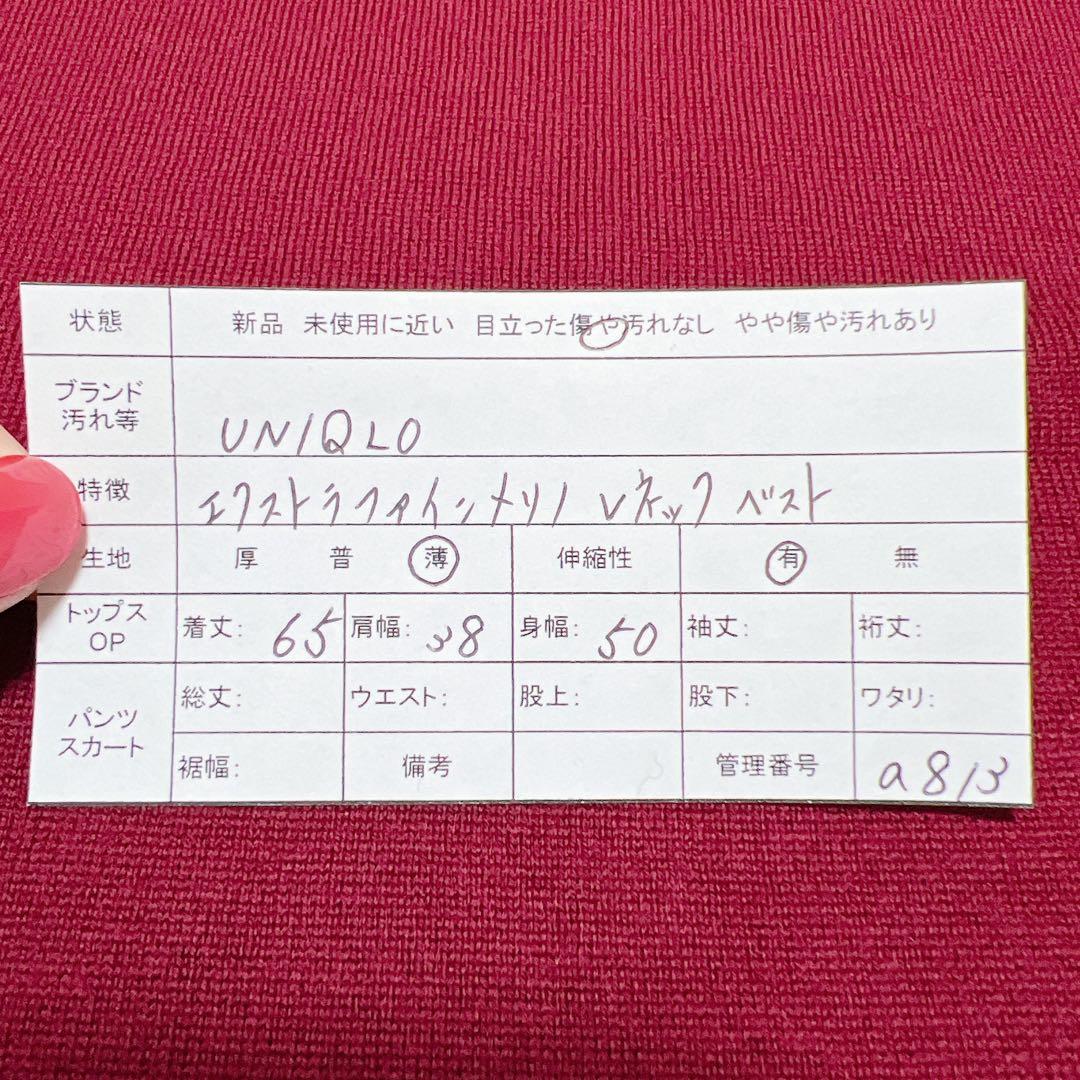 状態 新品 未使用に近い 目立った傷や汚れなし やや傷や汚れあり
ブランド
汚れ等 UNIQLO
特徴 エクストラファインメリノ Vネック ベスト
生地 厚 普 薄 伸縮性 有 無
トップス
OP 着丈: 65 肩幅: 38 身幅: 50 袖丈: 裄丈:
パンツ
スカート 総丈: ウエスト: 股上: 股下: ワタリ:
裾幅: 備考 管理番号 a813